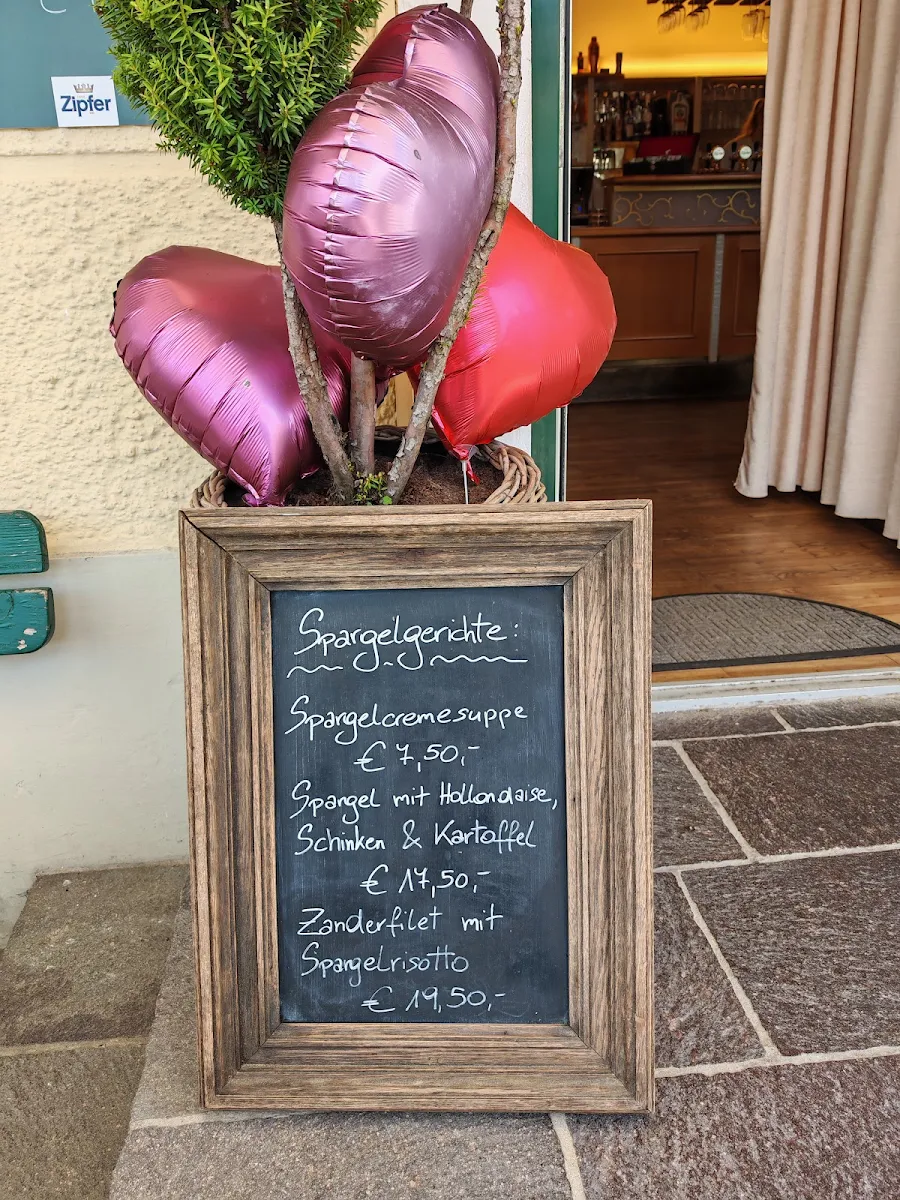 Zipfer
Spargelgerichte:
Spargelcremesuppe
€ 7,50,-
Spargel mit Hollandaise,
Schinken & Kartoffel
€ 17,50,-
Zanderfilet mit
Spargelrisotto
€ 19,50,-